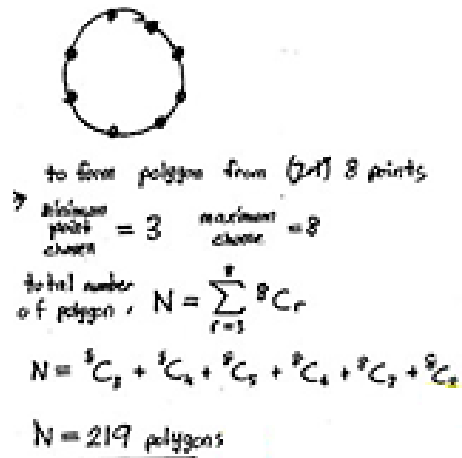 to form polygon from (2+1) 8 points
minimum point chosen = 3 maximum choose = 8
total number of polygon, N = ∑ ⁸Cᵣ
N = ⁸C₃ + ⁸C₄ + ⁸C₅ + ⁸C₆ + ⁸C₇ + ⁸C₈
N = 219 polygons